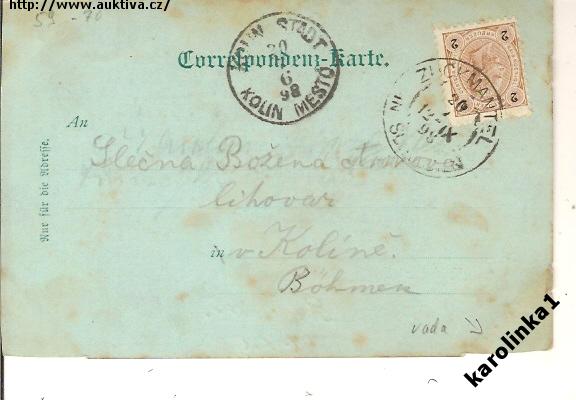 http://www.auktiva.cz/
59 - 70
Correspondenz-Karte.
KOLIN STADT
20
6
98
KOLIN MĚSTO
2
2
ZUCKMANTEL
20
98
An
Slečna Božena
lihovar
in v Kolíně.
Böhmen
Nur für die Adresse.
vada
karolinka1